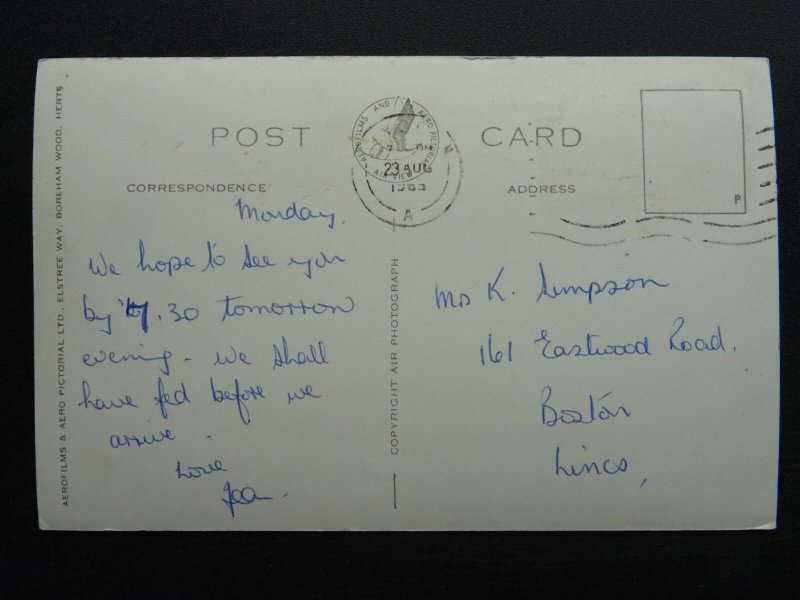 POST CARD
CORRESPONDENCE ADDRESS
AEROFILMS AND AERO PICTORIAL
AIR VIEW
23 AUG
A
P
AEROFILMS & AERO PICTORIAL LTD, ELSTREE WAY, BOREHAM WOOD, HERTS
Monday.
We hope to see you
by 7.30 tomorrow
evening - we shall
have fed before we
arrive.
Love
COPYRIGHT AIR PHOTOGRAPH
K. Simpson
161 Eastwood Road.
Boston
Lincs,